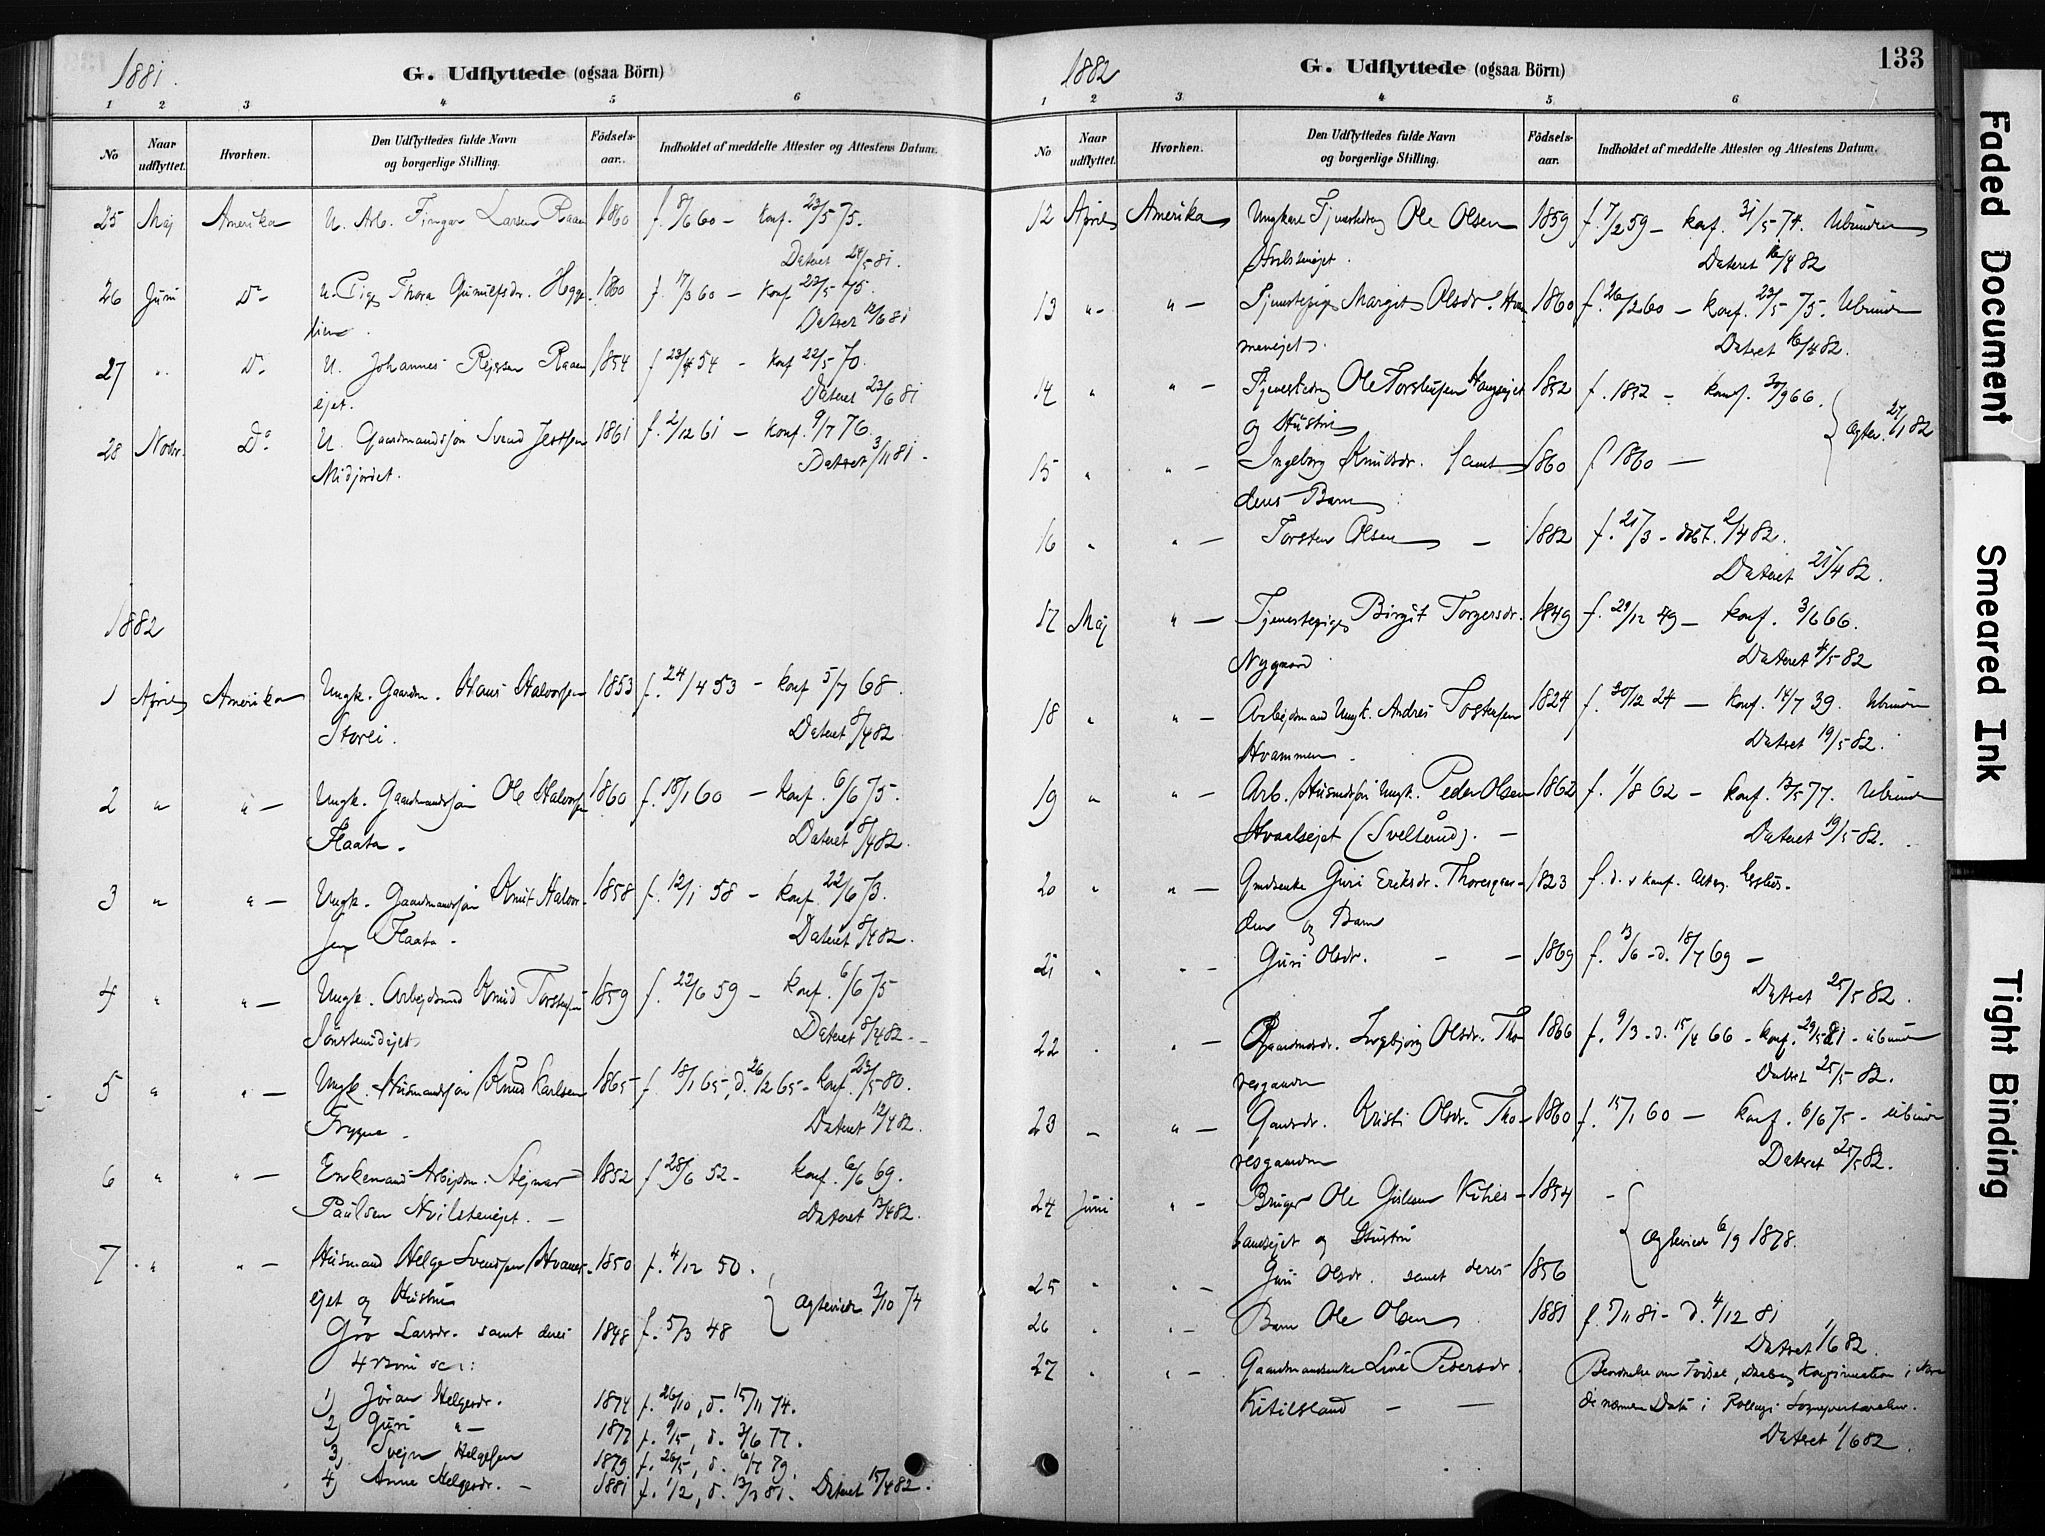 1881.
G. Udflyttede (ogsaa Börn)
1 2 3 4 5 6
No
Naar udflyttet.
Hvorhen.
Den Udflyttedes fulde Navn og borgerlige Stilling.
Födsels-aar.
Indholdet af meddelte Attester og Attestens Datum.
25 Maj Amerika U. Arb. Fingar Larsen Raaen 1860 f. 8/6 60 – Konf. 23/5 75.
Dateret 24/5 81.
26 Juni Do U. Pige Thora Gunulfsdr. Hegge- 1860 f. 17/3 60 – Konf 23/5 75.
lien. Dateret 12/6 81
27 " Do U. Johannes Rejersen Raaen 1854 f 23/4 54 – Konf 22/5 70.
ejet. Dateret 23/6 81
28 Novbr. Do U. Gaardmandssøn Svend Jestsen 1861 f. 2/12 61 – Konf. 9/7 76.
Midjordet. Dateret 3/11 81 –
1882
1 April Amerika Ungk. Gaardm. Hans Halvorsen 1853 f. 24/4 53 – konf 5/7 68.
Storli. Dateret 8/4 82
2 " " – Ungk. Gaardmandssøn Ole Halvorsen 1860 f. 18/1 60 – konf. 6/6 75.
Flaata. Dateret 8/4 82.
3 " " – Ungk. Gaardmandssøn Knut Halvor- 1858 f. 12/1 58 – konf. 22/6 73.
sen Flaata. Dateret 8/4 82.
4 " " – Ungk. Arbejdsmd Knud Torstensen 1859 f. 22/6 59 – konf. 6/6 75
Dateret 8/4 82.
5 " " – Ungk. Husmandssøn Knud Karlsen 1865 f 18/1 65, d. 26/2 65 – konf. 23/5 80.
Frygne. Dateret 12/4 82.
6 " " – Enkemand Arbejdsm. Stejnar 1852 f 28/6 52 – konf. 6/6 69.
Paulsen Hvilstenejet. – Dateret 13/4 82.
7 " " – Husmand Helge Svendsen 1850 f. 4/12 50.
ejet og Hustru Ægteviede 2/10 74
Gro Larsdr. samt deres 1848 f. 5/3 48
4 Børn sc:
1) Jøran Helgesdr. 1874 f. 26/10, d. 15/11 74.
2) Guri " – 1877 f. 9/5, d. 3/6 77.
3) Svejn Helgesen 1879 f. 26/5, d. 6/7 79.
4) Anne Helgesdr. – 1881 f. 1/2, d. 13/3 81. Dateret 15/4 82.
1882
G. Udflyttede (ogsaa Börn)
133
1 2 3 4 5 6
No
Naar udflyttet.
Hvorhen.
Den Udflyttedes fulde Navn og borgerlige Stilling.
Födsels-aar.
Indholdet af meddelte Attester og Attestens Datum.
12 April Amerika Ungkarl Tjenestedreng Ole Olsen 1859 f. 7/2 59 – konf. 31/5 74. Ubunden
Hvilstenejet. Dateret 16/4 82
13 " – " – Tjenestepige Margit Olsdr. 1860 f. 26/2 60 – konf. 23/5 75. Ubunden
Dateret 16/4 82.
14 " " – Tjenestedreng Ole Torstensen 1852 f. 1852 – konf. 966.
og Hustru Ægtev. 27/1 82
15 " " – Ingeborg Knudsdr. samt 1860 f 1860 –
deres Barn
16 " " – Torsten Olsen – 1882 f. 21/3 – døbt. 2/4 82.
Dateret 21/4 82.
17 Maj " – Tjenestepige Birgit Torgersdr. 1849 f. 29/12 49 – konf. 3/6 66.
Nygaard Dateret 4/5 82
18 " " – Arbejdsmand Ungk. Andres Tostensen 1824 f. 30/12 24 – konf. 14/7 39. Ubunden
Hvammen. Dateret 19/5 82.
19 " " – Arb. Husmdssøn Ungk. Peder Olsen 1862 f. 1/8 62 – konf. 13/5 77. Ubunden
Hvaalsejet (Svelterud). – Dateret 19/5 82.
20 " " – Gmdsenke Guri Eriksdr. Thoresgaar- 1823 f. d. & konf.
den og Barn
21 " " – Guri Olsdr. – – 1869 f. 13/6 – d. 18/7 69 –
Dateret 25/5 82.
22 " " – Gaardmdsdr. Ingebjørg Olsdr. Tho- 1866 f. 9/3 – d. 15/4 66 – konf. 29/5 81 – ubunden
resgaarden Dateret 25/5 82.
23 " " – Gaardsdr. Kristi Olsdr. Tho- 1860 f. 15/1 60 – konf. 6/6 75 – ubunden
resgaarden Dateret 25/5 82.
24 Juni " – Bruger Ole Gislesen Kitils- 1854 –
landsejet og Hustru Ægteviede 6/9 1878.
25 " " – Guri Olsdr. samt deres 1856
26 " " – Barn Ole Olsen 1881 f. 5/11 81 – d. 4/12 81
Dateret 1/6 82.
27 " " – Gaardmandsenke Livi Pedersdr. Beretning om Fødsel, Daab og Konfirmation i
Kitilsland – – Sogneprest
Dateret 1/6 82.
Faded Document
Smeared Ink
Tight Binding